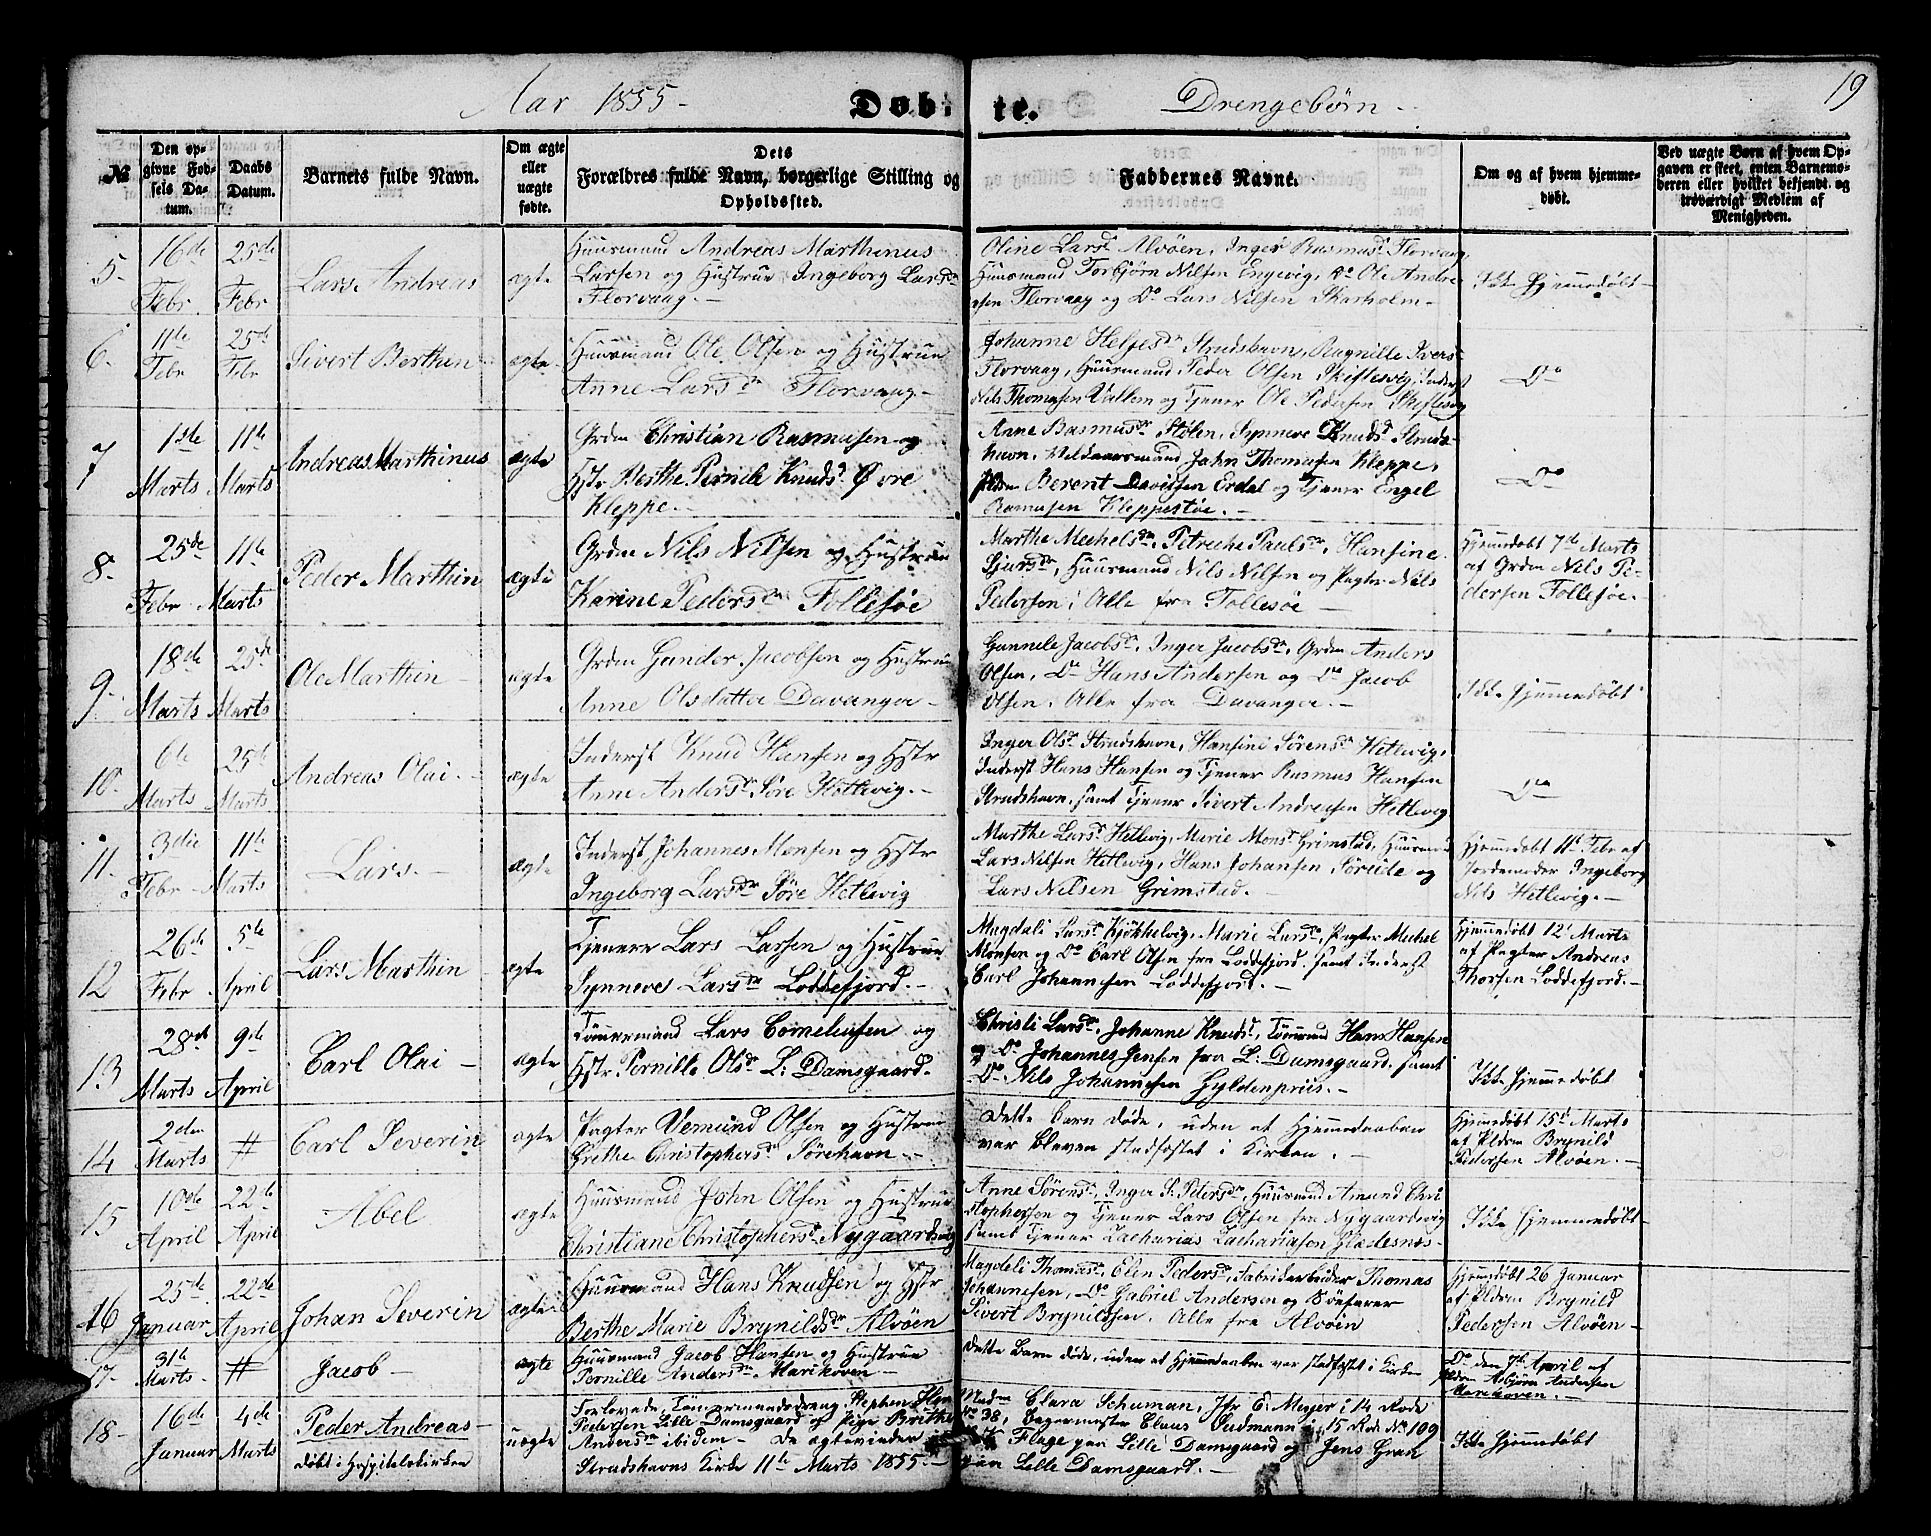 Aar 1855 - Døbte. Drengebørn - 19
№
Den opgivne Fødsels Datum.
Daabs Datum.
Barnets fulde Navn.
Om ægte eller uægte fødte.
Dets Forældres fulde Navn, borgerlige Stilling og Opholdssted.
Faddernes Navne.
Om og af hvem hjemmedøbt.
Ved uægte Børn af hvem Opgaven er skeet, enten Barnemoderen eller hvilket bekjendt og troværdigt Medlem af Menigheden.
5. 16de Febr. 25de Febr Lars Andreas ægte
Huusmand Andreas Marthinus
Larsen og Hustrue Ingeborg Larsdr
Florvaag.-
Oline Larsd. Alvøen, Inger Rasmusd. Florvaag,
Huusmand Torbjørn Nilsen Engevig, Do Ole Andre-
sen Florvaag og Do Lars Nilsen Skarholm-
Ikke Hjemmedøbt-
6. 11te Febr 25de Febr Sivert Berthin ægte-
Huusmand Ole Olsen og Hustrue
Anne Larsdr Florvaag-
Johanne Heljesdr Strudshavn, Ragnille Ivers-
Florvaag, Huusmand Peder Olsen Skiftesvig, Inderst
Nils Thomasen Vallem og Tjener Ole Pedersen Skiftesvig
Do
7 1ste Marts 11te Marts Andreas Marthinus ægte
Grdm Christian Rasmusen og
Hstr Berthe Pernile Knudsd. Øvre
Kleppe.-
Anne Rasmusdr Stølen, Synneve Knudsd. Struds-
havn, Veldaarsmand John Thomasen Kleppe,
Pldm Berent Davidsen Erdal og Tjener Engel
Rasmusen Kleppestøe.-
Do
8. 25de Febr 11te Marts Peder Marthin ægte
Grdm Nils Nilsen og Hustrue
Karine Pedersdr Follesøe
Marthe Mechelsdr, Petriche Paulsdr, Hansine
Sjursdr, Huusmand Nils Nilsen og Pagter Nils
Pedersen, Alle fra Follesøe-
Hjemmdøbt 7de Marts
af Grdm Nils Pe-
dersen Follesøe.-
9. 18de Marts 25de Marts Ole Marthin- ægte
Grdm Gunder Jacobsen og Hustrue
Anne Olsdatter Davanger-
Gunnile Jacobsdr, Inger Jacobsdr, Grdm Anders
Olsen, Do Hans Andersen og Do Jacob
Olsen, Alle fra Davanger.-
Ikke Hjemmedøbt
10. 6te Marts 25de Marts Andreas Olai.- ægte
Inderst Knud Hansen og Hstr
Anne Andersdr Søre Hetlevig.-
Inger Olsdr Strudshavn, Hansine Sørensdr Hetlevig,
Inderst Hans Hansen og Tjener Rasmus Hansen
Strudshavn, samt Tjener Sivert Andreasen Hetlevig
Do
11. 3die Febr- 11te Marts Lars.- ægte
Inderst Johannes Monsen og Hstr
Ingeborg Larsdr Søre Hetlevig
Marthe Larsd. Hetlevig, Marie Monsd. Grimstad, Huusmand
Lars Nilsen Hetlevig, Hans Johansen Søreide og
Lars Nilsen Grimstad.-
Hjemmdøbt 11te Febr af
Jordemoder Ingeborg
Nils Hetlevig.-
12 26de Febr. 5te April Lars Marthin ægte
Tjener Lars Larsen og Hustrue
Synneve Larsdr Loddefjord.-
Magdali Larsd. Kjøkkelvig, Marie Larsdr, Pagter Mechel
Monsen og Do Carl Olsen fra Loddefjord, samt Inderst
Carl Johannesen Loddefjord.-
Hjemmedøbt 12te Marts
af Pagter Andreas
Thorsen Loddefjord.-
13 28de Marts 9de April Carl Olai- ægte
Tømmermand Lars Corneliusen og
Hstr Pernille Olsdr L: Damsgaard.
Christi Larsdr, Johanne Knudsd, Tømmmd Hans Hansen
og Do Johannes Jensen fra L. Damsgaard, samt
Do Nils Johannesen Gyldenpriis.-
Ikke Hjemmedøbt
14 2den Marts # Carl Severin ægte
Pagter Vemund Olsen og Hustrue
Grethe Christophersd. Sørehavn-
Dette Barn døde, uden at Hjemmedaaben
var bleven stadfæstet i Kirken.-
Hjemmedøbt 15de Marts
af Pldm Brynild
Pedersen Alvøen.-
15 10de April 22de April Abel ægte
Huusmand John Olsen og Hustrue
Christiane Christophersd. Nygaardsvig
Anne Sørensdr, Inger S. Pedersdr, Huusmand Amund Chri-
stophersen og Tjener Lars Olsen fra Nygaardsvig
samt Tjener Zacharias Zachariasen Gladesnæs-
Ikke Hjemmedøbt-
16 25de Januar 22de April Johan Severin ægte-
Huusmand Hans Knudsen og Hstr
Berthe Marie Brynildsdr Alvøen
Magdeli Thomasd., Elen Pedersd., Fabrikarbeider Thomas
Johannesen, Do Gabriel Andersen og Søefarer
Sivert Brynildsen, Alle fra Alvøen
Hjemmdøbt 26 Januar
af Pldm Brynild
Pedersen Alvøen-
17 31te Marts- # Jacob- ægte
Huusmand Jacob Hansen og Hustrue
Pernille Andersdr Marikoven-
Dette Barn døde, uden at Hjemmedaaben var stadfæstet i Kirken
Do den 7de April af
Pldm Asbjørn Andersen
Marikoven.-
18- 16de Januar 4de Marts Peder Andreas- uægte
døbt i Hospitalskirken
Forlovede, Tømmermandsdreng Stephen
Pedersen Lille Damsgaard og Pige Brithe
Andersdr ibidem- De ægtevieder
Strudshavns Kirke 11te Marts 1855.-
Madm Clara Schuman, Jfr E. Meyer i 14 Rode
No 38, Bagermester Claus Sudmann i 15 Rode No 109
Flage paa Lille Damsgaard og Jens Gran
paa Lille Damsgaard.-
Ikke Hjemmdøbt